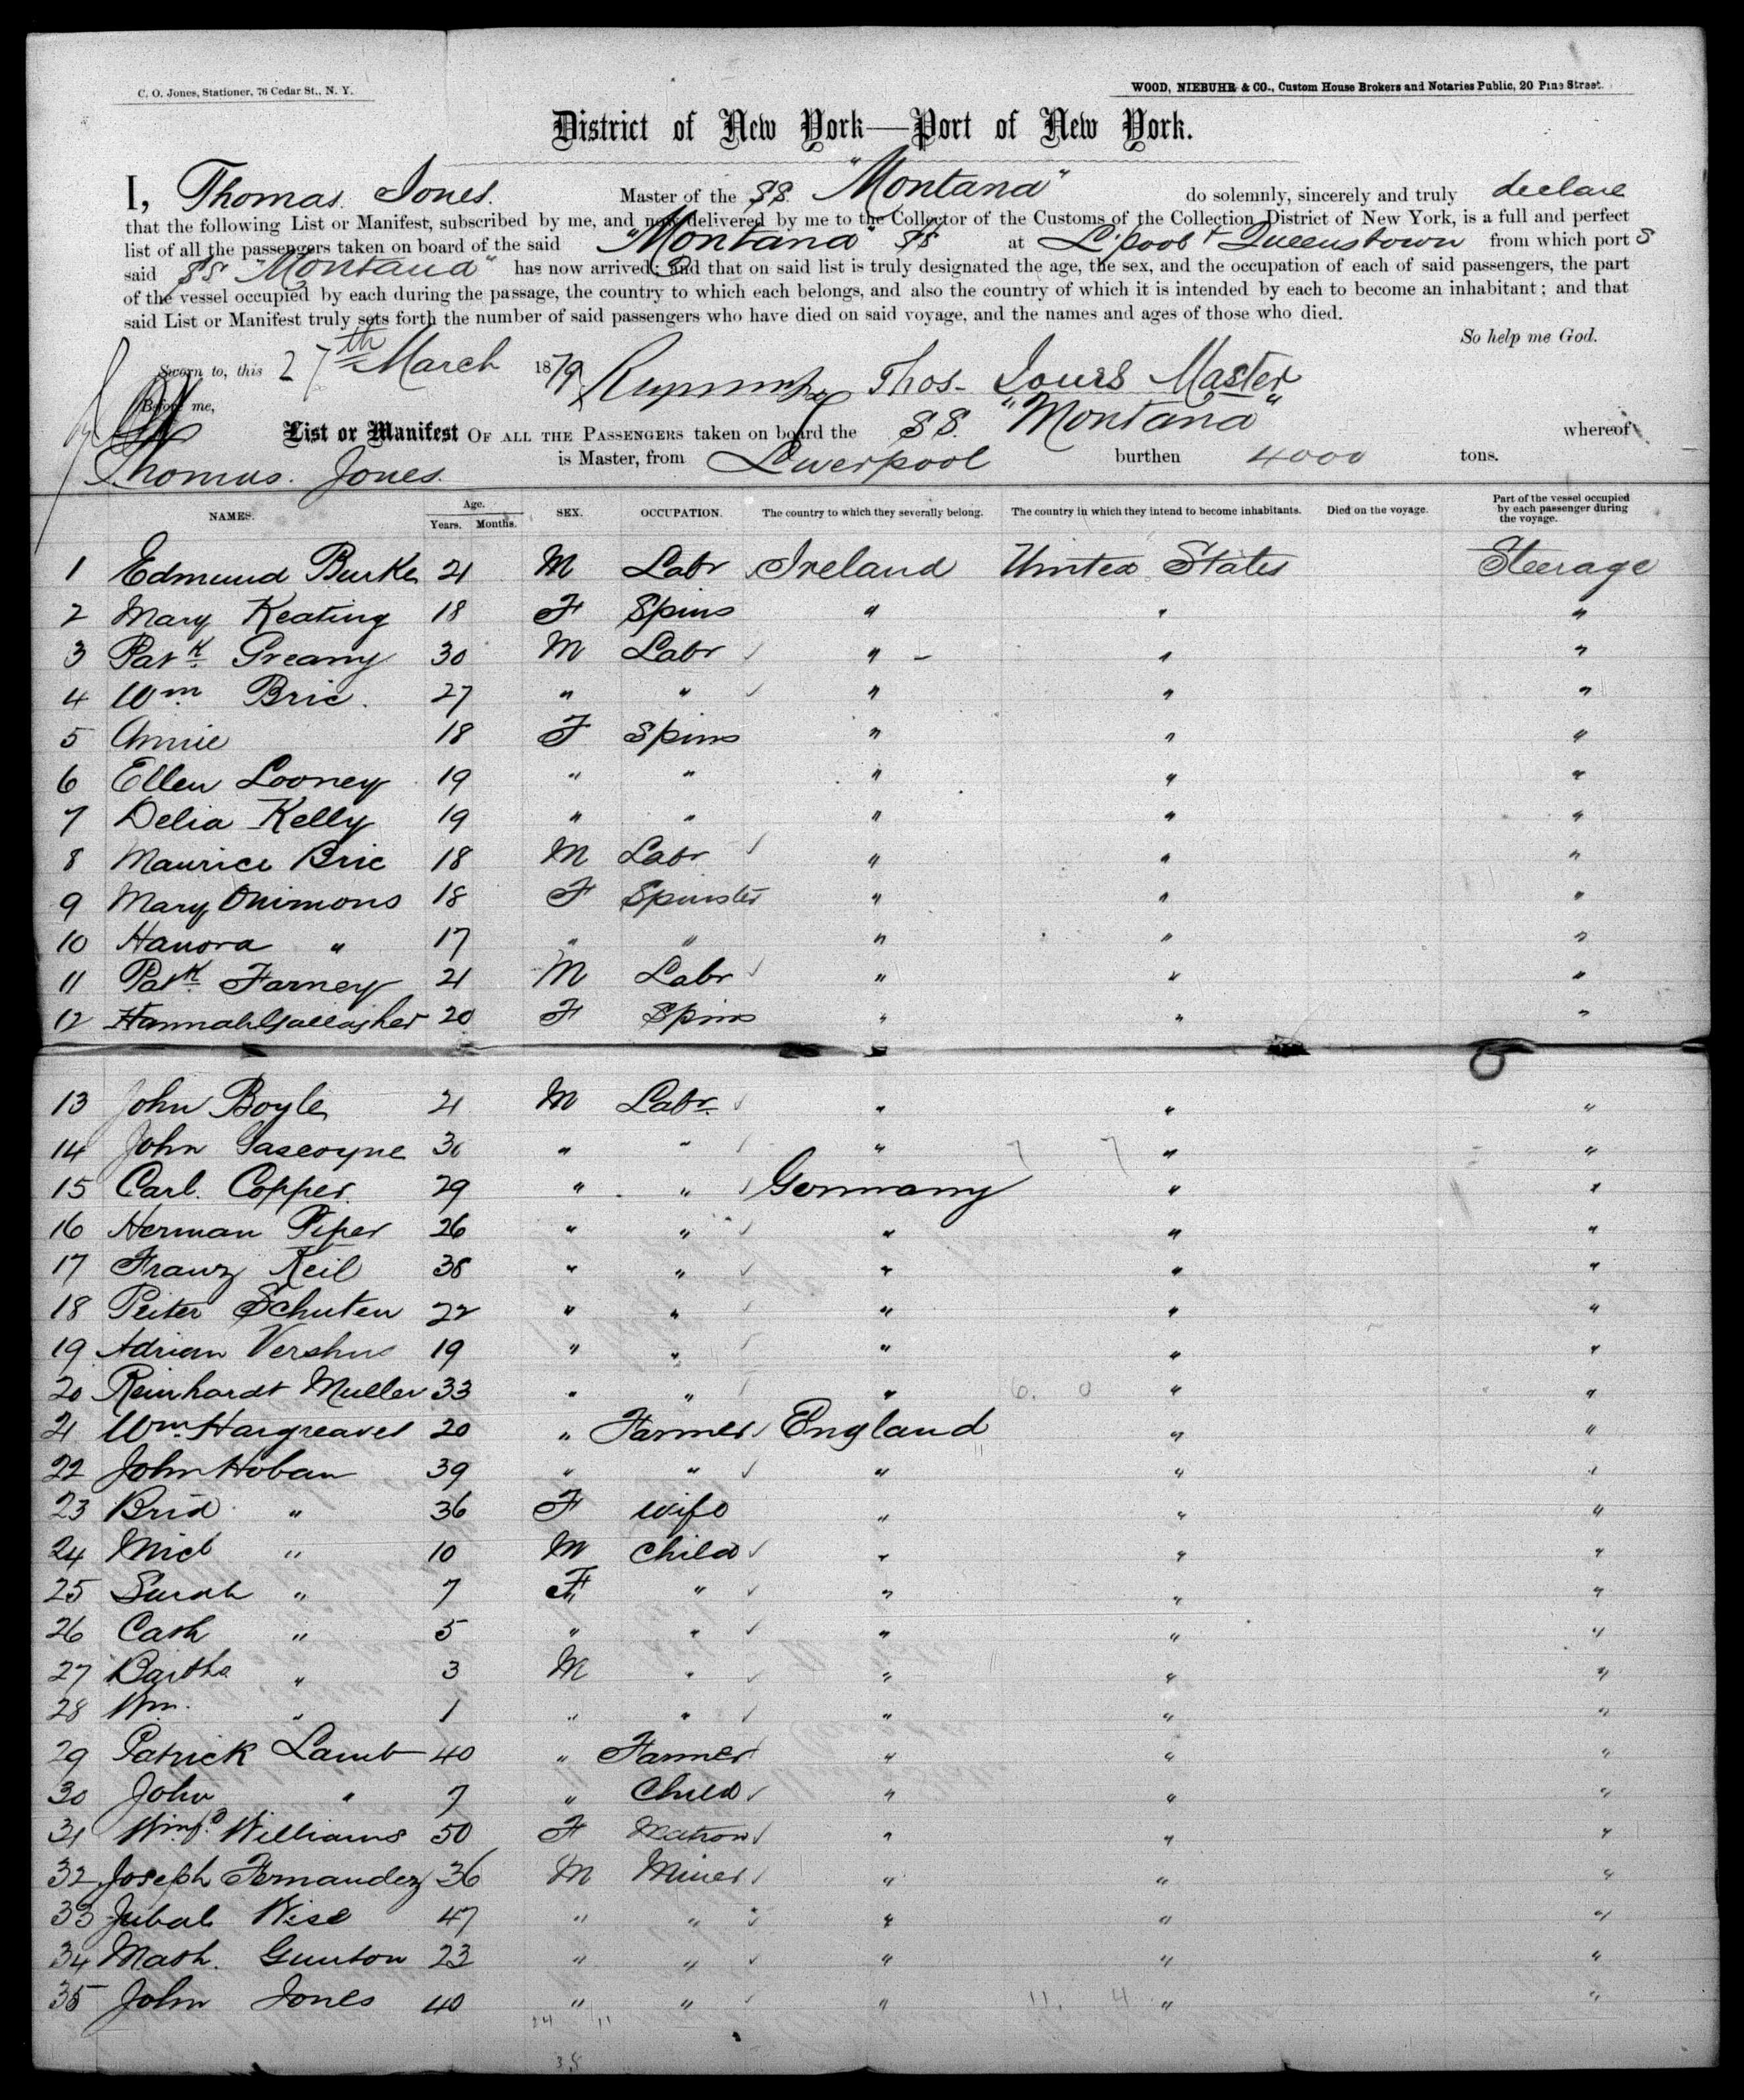 C. O. Jones, Stationer, 76 Cedar St., N. Y.
WOOD, NIEBUHR & CO., Custom House Brokers and Notaries Public, 20 Pine Street.
District of New York—Port of New York.
I, Thomas Jones. Master of the SS. "Montana" do solemnly, sincerely and truly declare
that the following List or Manifest, subscribed by me, and now delivered by me to the Collector of the Customs of the Collection District of New York, is a full and perfect
list of all the passengers taken on board of the said "Montana" SS at L'pool + Queenstown from which port s
said SS "Montana" has now arrived; and that on said list is truly designated the age, the sex, and the occupation of each of said passengers, the part
of the vessel occupied by each during the passage, the country to which each belongs, and also the country of which it is intended by each to become an inhabitant; and that
said List or Manifest truly sets forth the number of said passengers who have died on said voyage, and the names and ages of those who died.
So help me God.
Sworn to, this 27th March 1879 Thos. Jones Master
Before me,
List or Manifest OF ALL THE PASSENGERS taken on board the SS. "Montana" whereof
Thomas. Jones. is Master, from Liverpool burthen 4000 tons.
NAMES. Age. Years. Months. SEX. OCCUPATION. The country to which they severally belong. The country in which they intend to become inhabitants. Died on the voyage. Part of the vessel occupied by each passenger during the voyage.
1 Edmund Burke 21 M Labr Ireland United States Steerage
2 Mary Keating 18 F Spins " " "
3 Patk Greany 30 M Labr " " "
4 Wm Bric. 27 " " " " "
5 Annie 18 F Spins " " "
6 Ellen Looney 19 " " " " "
7 Delia Kelly 19 " " " " "
8 Maurice Bric 18 M Labr " " "
9 Mary 18 F Spinster " " "
10 Hanora " 17 " " " " "
11 Patk Farney 21 M Labr " " "
12 Hannah Gallagher 20 F Spins " " "
13 John Boyle 21 M Labr. " " "
14 John Gascoyne 30 " " " " "
15 Carl. Copper. 29 " " Germany " "
16 Herman Piper 26 " " " " "
17 Franz Keil 38 " " " " "
18 Peiter Schuten 22 " " " " "
19 Adrian 19 " " " " "
20 Reinhardt Muller 33 " " " " "
21 Wm. Hargreaves 20 " Farmer England " "
22 John Hoban 39 " " " " "
23 Brid " 36 F wife " " "
24 Micl " 10 M Child " " "
25 Sarah " 7 F " " " "
26 Cath " 5 " " " " "
27 Bartho " 3 M " " " "
28 Wm. " 1 " " " " "
29 Patrick Lamb 40 " Farmer " " "
30 John " 7 " Child " " "
31 Winfd. Williams 50 F Matron " " "
32 Joseph Fernandez 36 M Miner " " "
33 Jubal Wise 47 " " " " "
34 Math. Gunton 23 " " " " "
35 John Jones 40 " " " " "